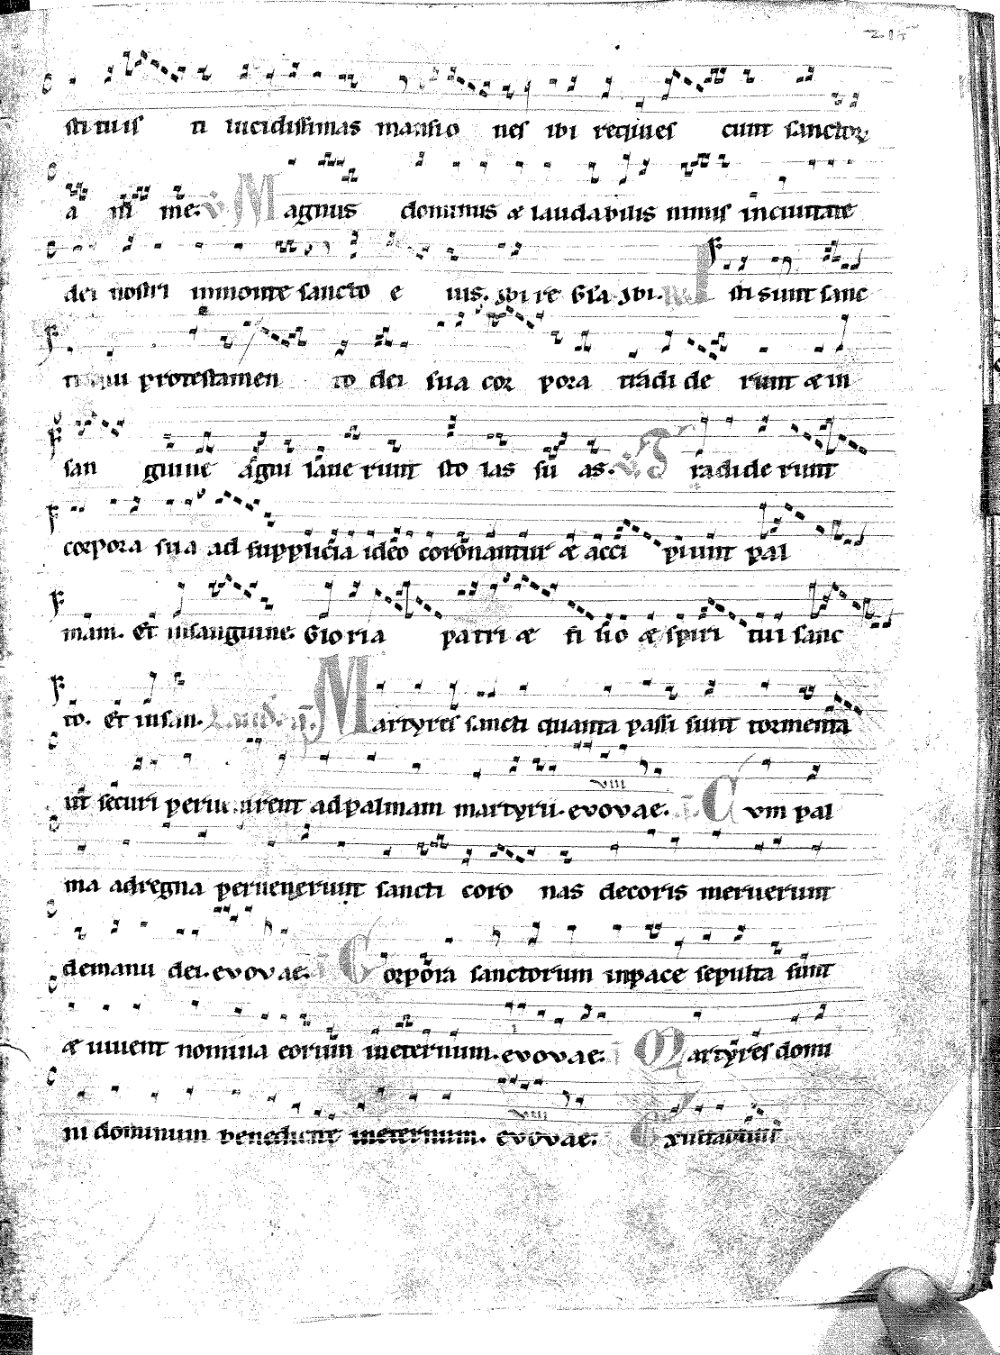 stituis ti lucidissimas mansio nes ibi requies cunt sanctoꝝ
a ni me. Magnus dominus & laudabilis nimis in ciuitate
dei nostri inmonte sancto e ius. ibi re Gl'a ibi. Isti sunt sanc
ti qui protestamen to dei sua cor pora tradi de runt & in
san guine agni laue runt sto las su as. Tradiderunt
corpora sua ad supplicia ideo coronantur & acci piunt pal
mam. Et insanguine. Gloria patri & fi lio & spiri tui sanc
to. Et insan. Martyres sancti quanta passi sunt tormenta
ut securi peruenirent adpalmam martyrii. evovae. viii Cvm pal
ma adregna peruenerunt sancti coro nas decoris meruerunt
demanu dei. evovae. Corpora sanctorum inpace sepulta sunt
& uiuent nomina eorum ineternum. evovae. Martyres domi
ni dominum benedicite ineternum. evovae. viii Exultabunt